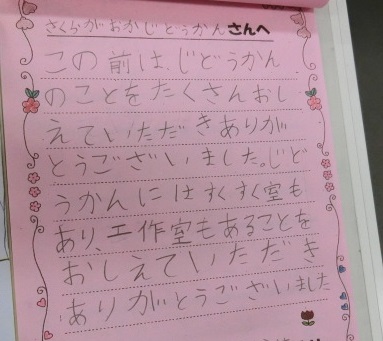 さくらがおかじどうかんさんへ
この前は、じどうかん
のことをたくさんおし
えていただきありが
とうございました。じど
うかんにはすくすく室も
あり、工作室もあることを
おしえていただき
ありがとうございました